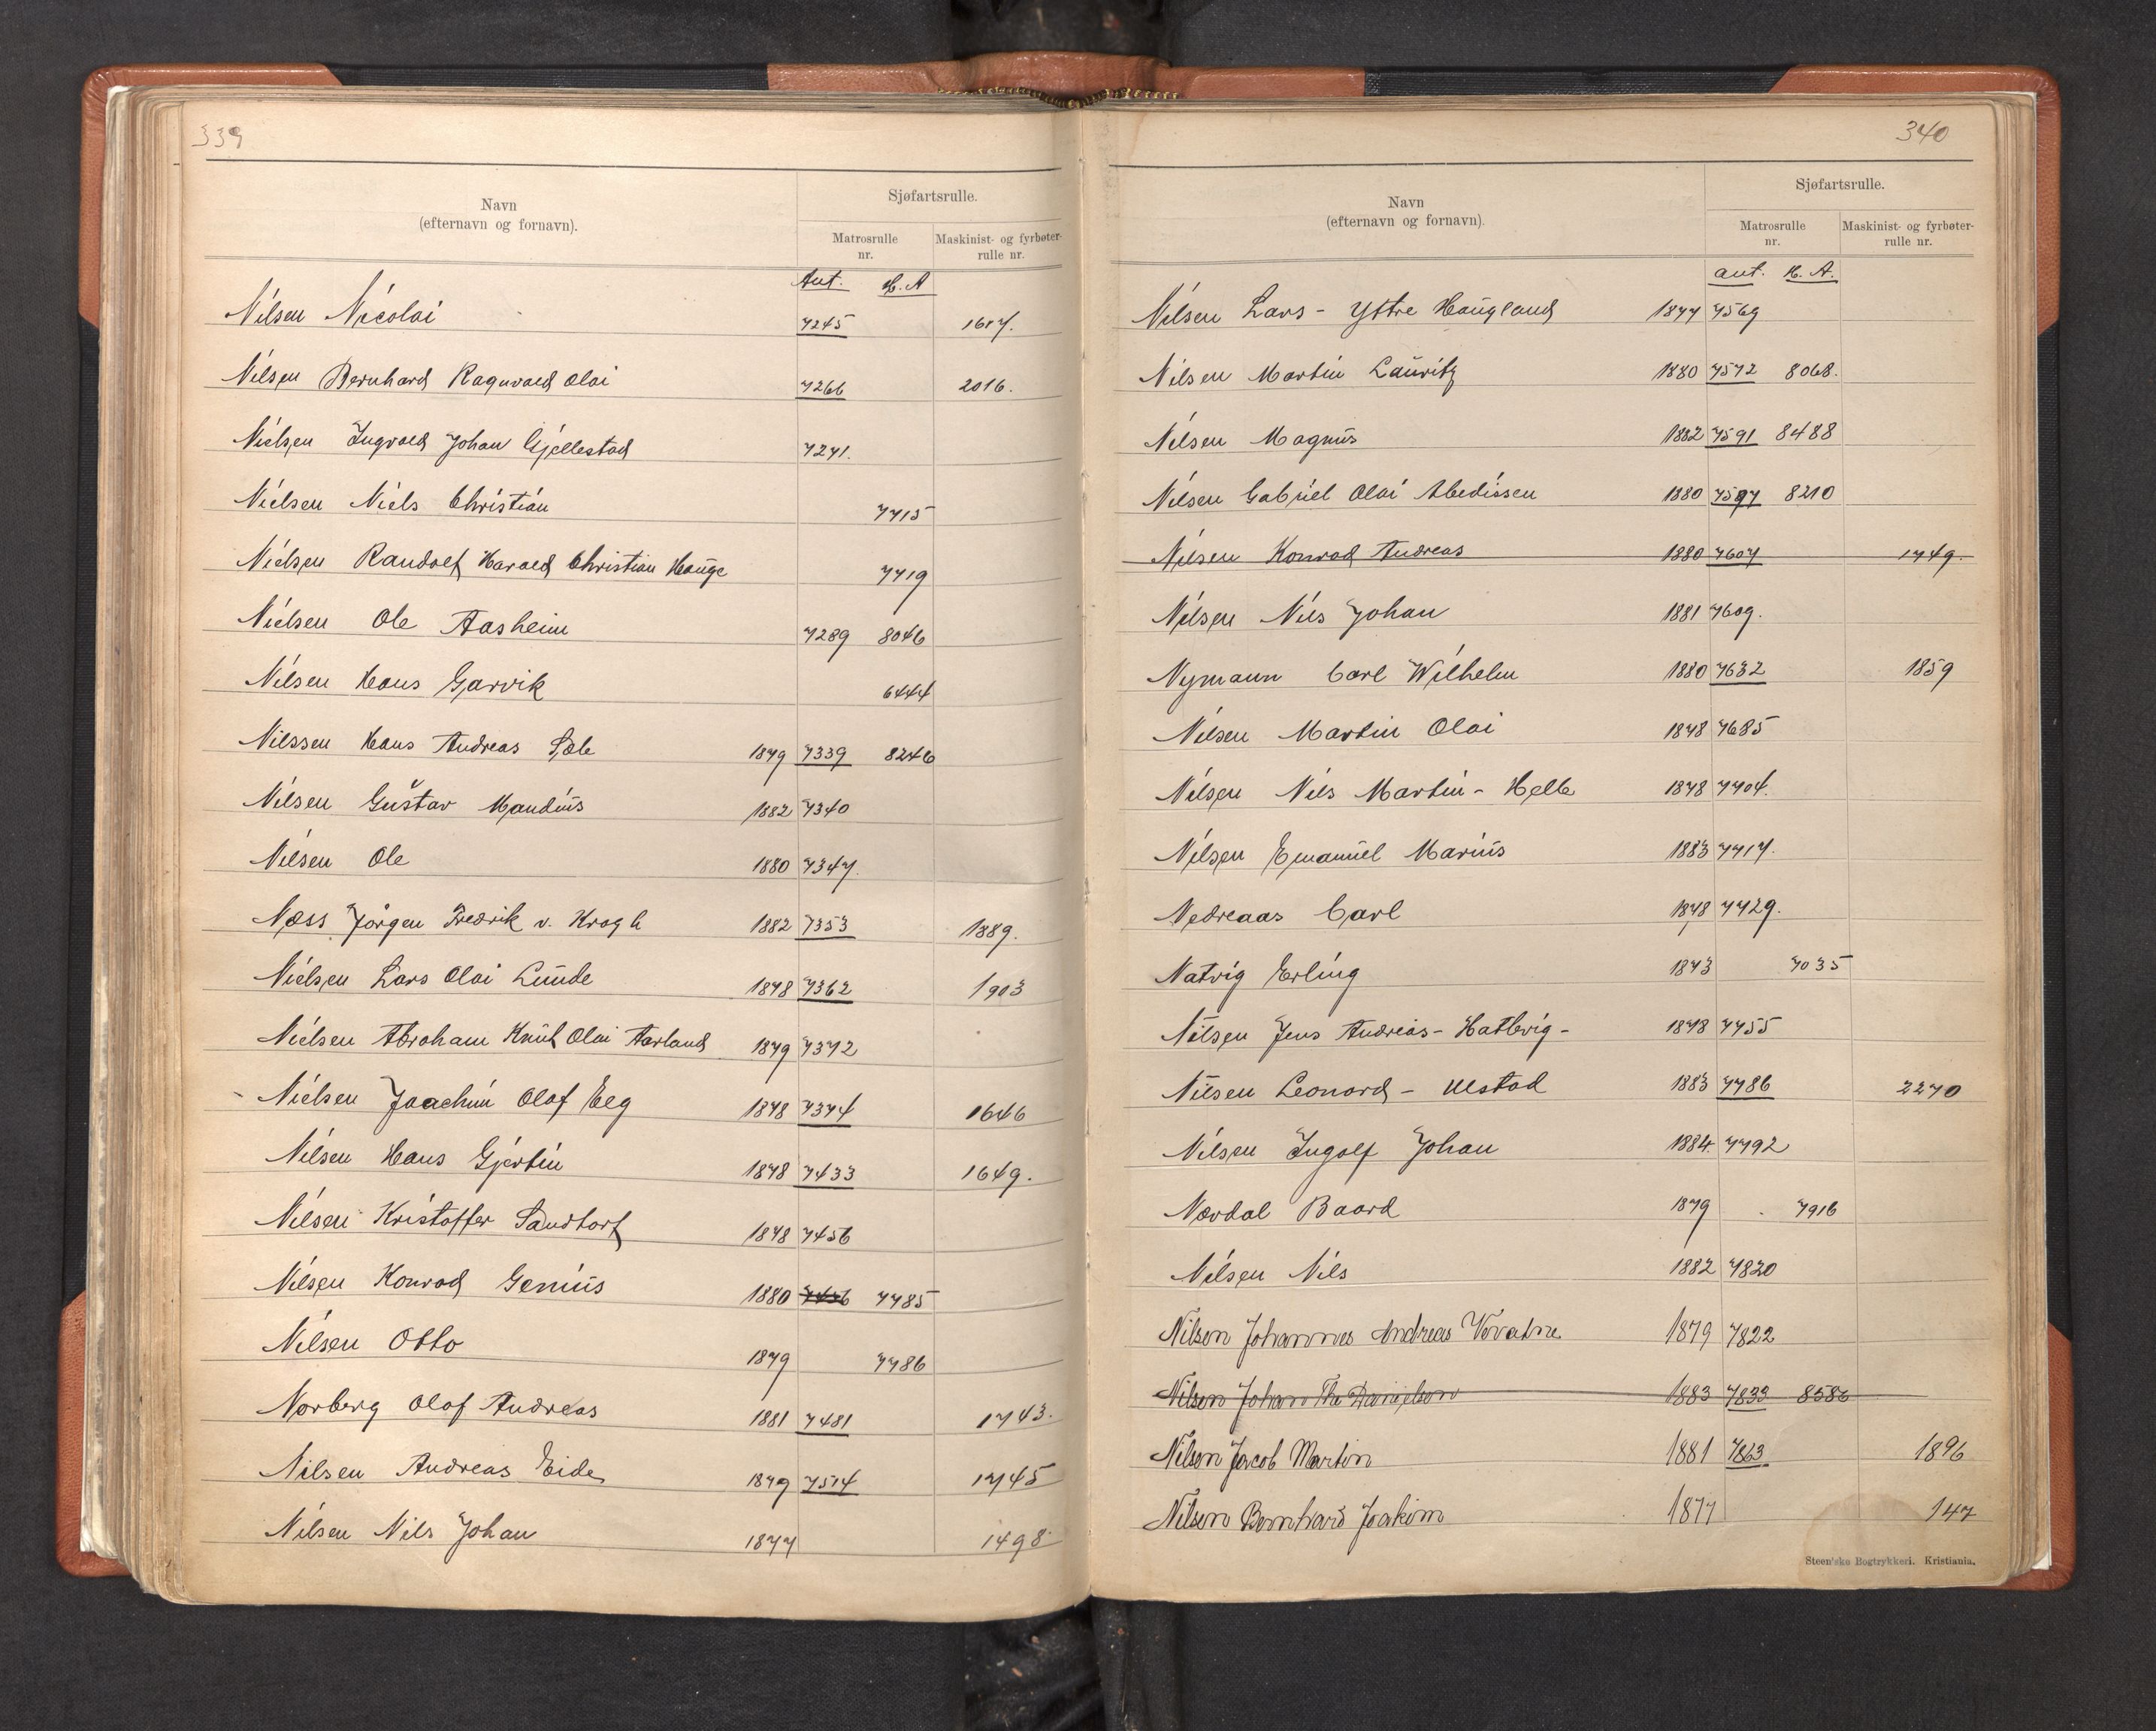 339
Navn
(efternavn og fornavn).
Sjøfartsrulle.
Matrosrulle
nr.
Maskinist- og fyrbøter-
rulle nr.
Ant. H. A
Nilsen Nicolai 7245 1617.
Nilsen Bernhard Ragnvald Olai 7266 2016.
Nielsen Ingvald Johan Gjellestad 7271.
Nielsen Niels Christian 7715
Nielsen Randolf Harald Christian Hauge 7719
Nielsen Ole Aasheim 7289 8046
Nilsen Hans Garvik 6444
Nilssen Hans Andreas Sæle 1879 7339 8246
Nilsen Gustav Mandius 1882 7340
Nilsen Ole 1880 7347.
Næss Jörgen Fredrik v. Krogh 1882 7353 1889.
Nielsen Lars Olai Lunde 1878 7362 1903
Nielsen Abraham Knut Olai Aarland 1879 7372
Nielsen Joachim Olaf Eeg 1878 7374 1646
Nilsen Hans Gjertin 1878 7433 1649.
Nilsen Kristoffer Sandtorf 1878 7456
Nilsen Konrad Genius 1880 7476 7785
Nilsen Otto 1879 7786
Norberg Olaf Andreas 1881 7481 1743.
Nilsen Andreas Eide 1879 7514 1745
Nilsen Nils Johan 1877 1498
340
Navn
(efternavn og fornavn).
Sjøfartsrulle.
Matrosrulle
nr.
Maskinist- og fyrbøter-
rulle nr.
ant. H. A.
Nilsen Lars - Yttre Haugland 1877 7569
Nilsen Martin Lauritz 1880 7572 8068.
Nilsen Magnus 1882 7591 8488
Nilsen Gabriel Olai Abedissen 1880 7597 8210
Nilsen Konrad Andreas 1880 7607 1749.
Nilsen Nils Johan 1881 7609.
Nymann Carl Wilhelm 1880 7632 1859
Nilsen Martin Olai 1878 7685
Nilsen Nils Martin - Helle 1878 7704.
Nilsen Emanuel Marius 1883 7717.
Nedreaas Carl 1878 7729.
Natvig Erling 1873 7035
Nilsen Jens Andreas - Hatlevig - 1878 7755
Nilsen Leonard - Ulstad 1883 7786 2270
Nilsen Ingolf Johan 1884. 7792
Nævdal Baard 1879 7916
Nilsen Nils 1882 7820
Nilsen Johannes Andreas Vevatne 1879 7822
Nilsen Johan The Danielsen 1883 7833 8586
Nilsen Jacob Martin 1881 7863 1896
Nilsen Bernhard Joakim 1877 147
Steen'ske Bogtrykkeri. Kristiania.